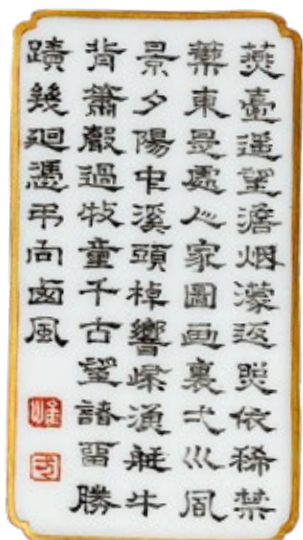 燕臺遥望澹烟濛返照依稀禁
藥東是處人家圖画裏弌川風
景夕陽中溪頭棹響歸漁艇牛
背簫聲過牧童千古望諸留勝
蹟幾廻憑弔向卥風